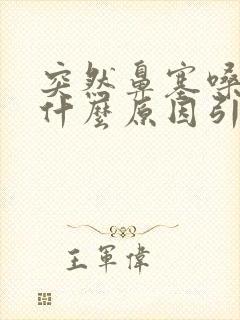 突然鼻塞嗓
什麼原因引
王軍偉